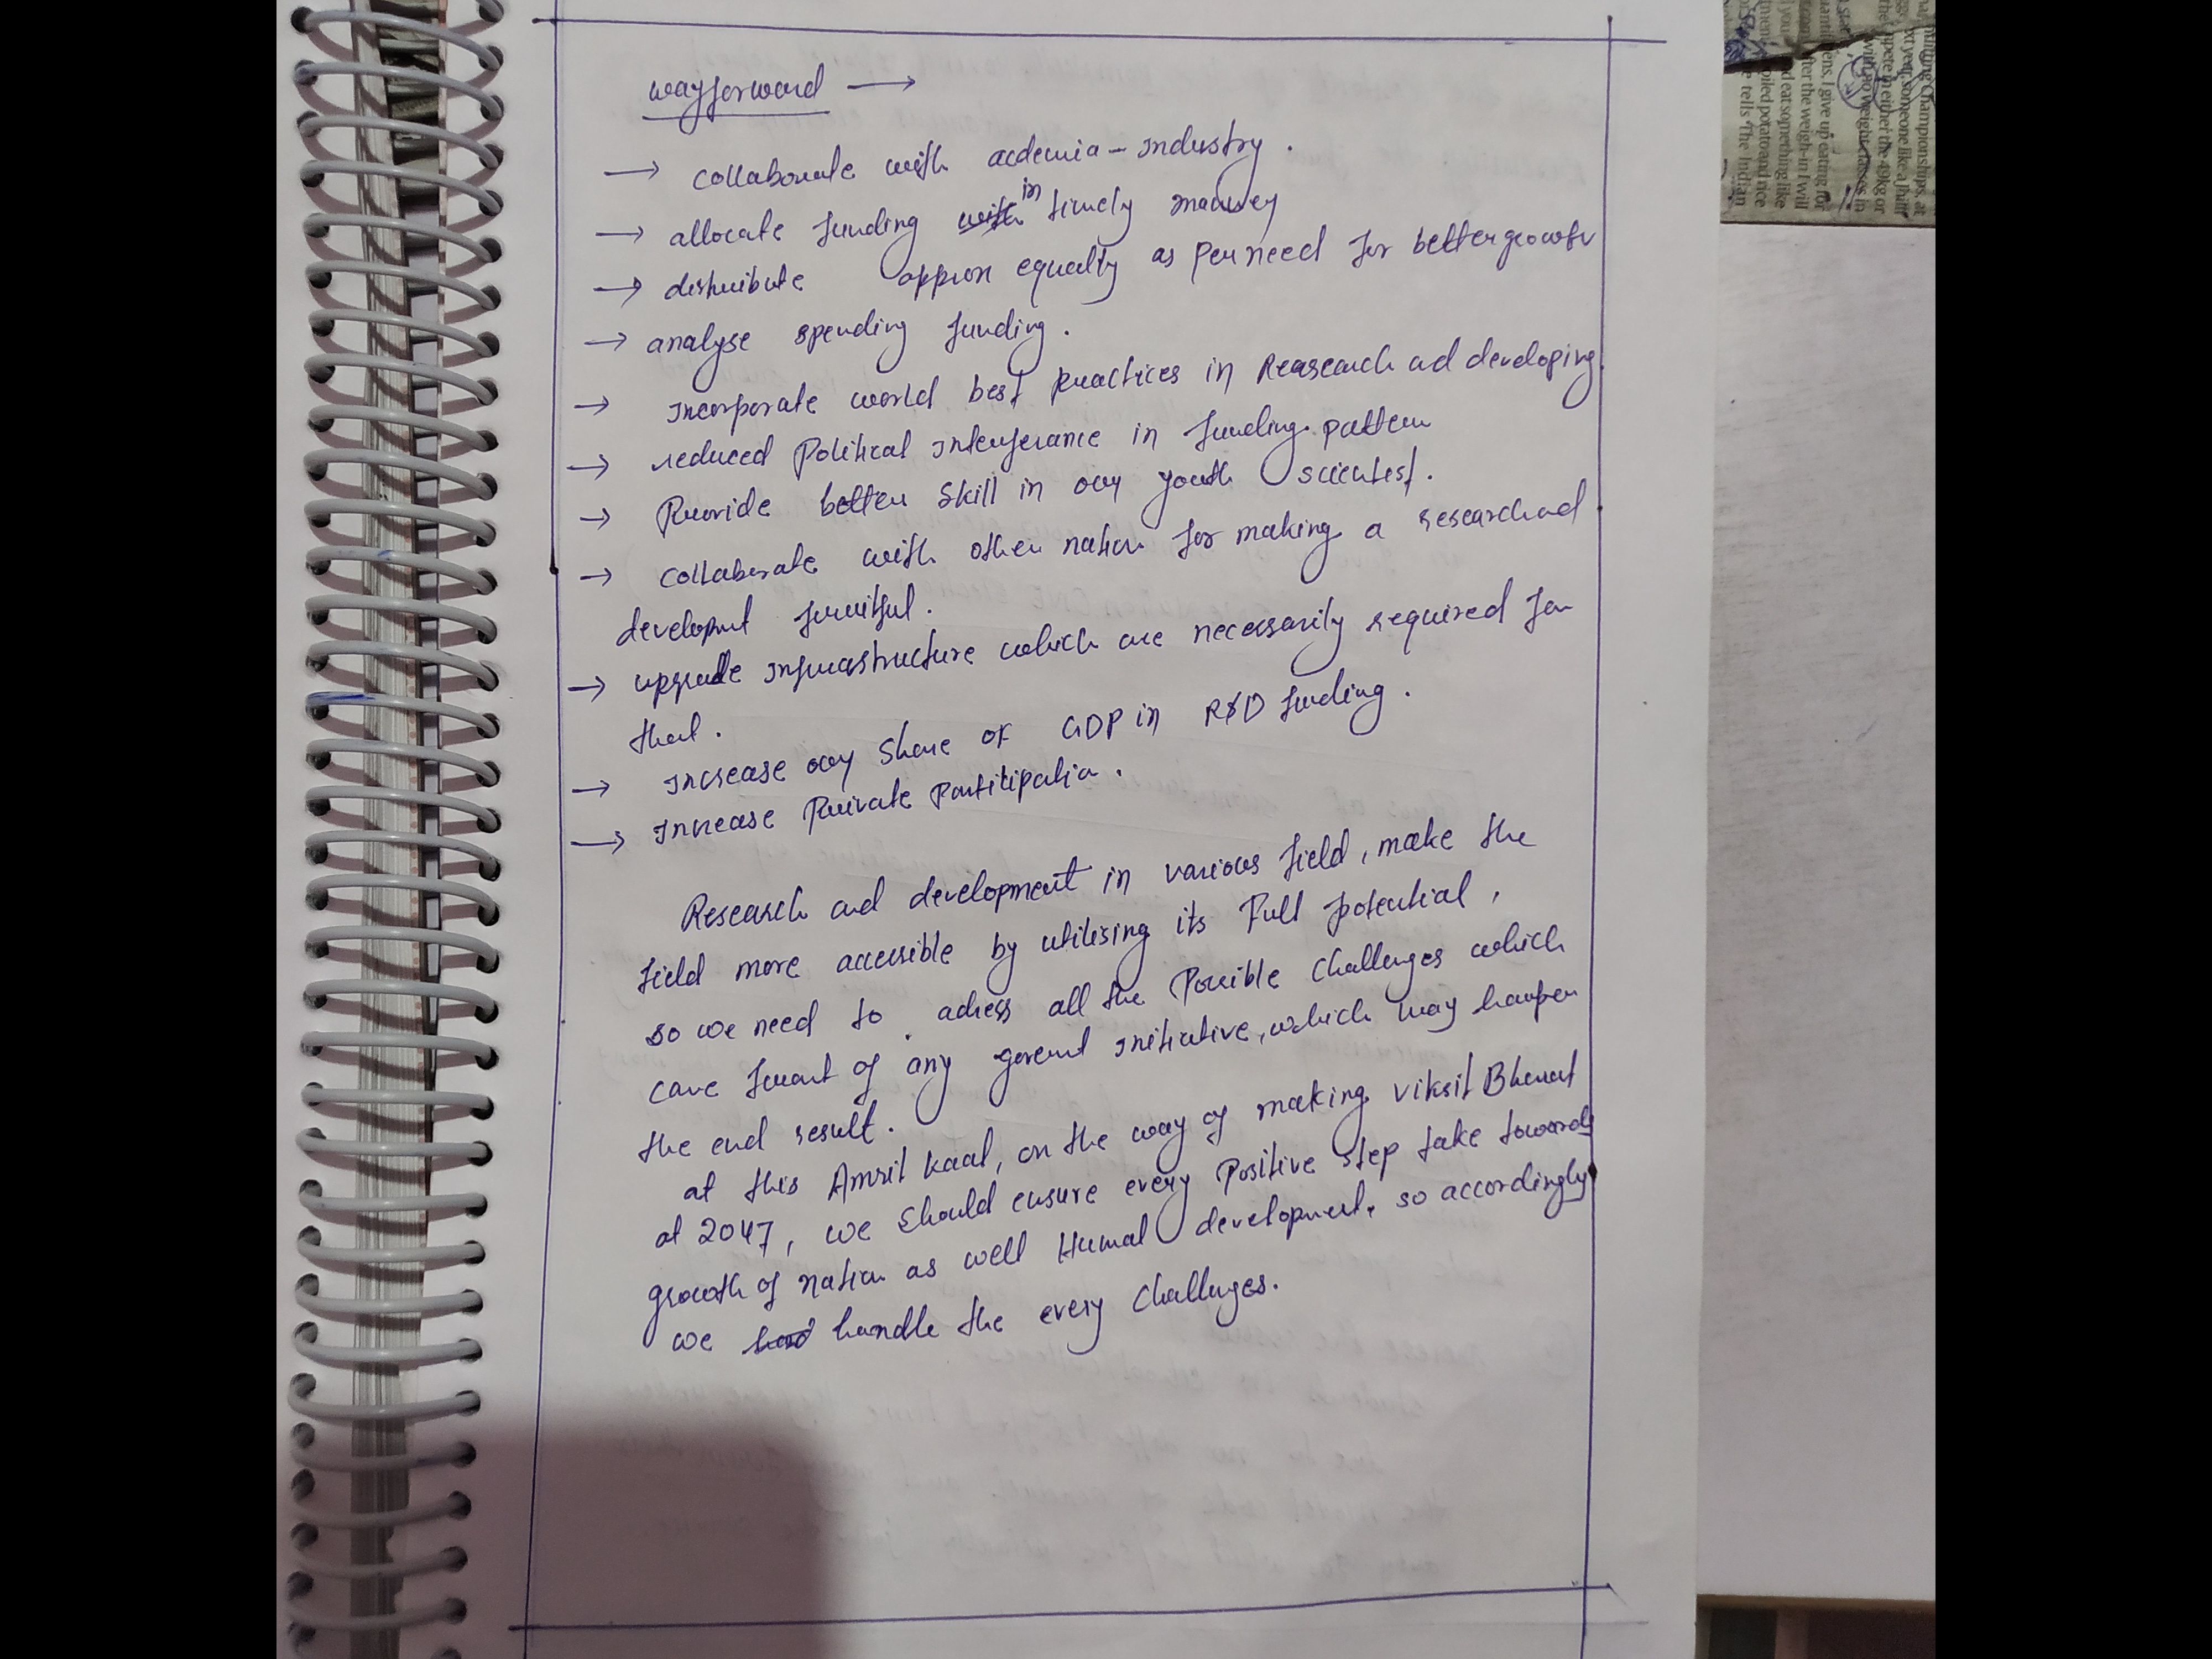 wayforward →
→ collaborate with acdemia - Industry .
→ allocate funding in timely manner
→ distribute approx equality as per need for better growth
→ analyse spending funding .
→ Incorporate world best practices in Reasearch ad developing
→ reduced Political Interferance in funding pattern
→ Provide better skill in our youth scientist .
→ collaborate with other nation for making a research ad
developmt fruitful .
→ upgrade Infrastructure which are necessarily required for
that .
→ Increase our share of GDP in R&D funding .
→ Increase Private Participation .
Research and development in various field, make the
field more accessible by utilising its Full potential ,
so we need to adress all the Possible challenges which
came front of any govermt Initiative, which may hamper
the end result .
at this Amrit kaal, on the way of making Viksit Bharat
at 2047, we should ensure every Positive step take towards
growth of nation as well Humal development. so accordingly
we handle the every challenges.
maiting Championships, at
xt year, someone like a
pete in either the 49kg or
ens, I give up eating for
fter the weigh-in I will
d eat something like
oiled potato and rice
e tells The Indian